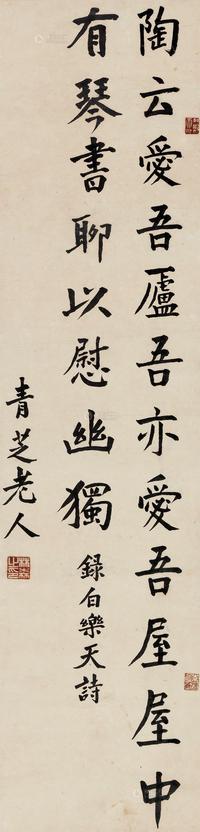 陶云愛吾廬吾亦愛吾屋屋中
有琴書聊以慰幽獨
錄白樂天詩
青芝老人